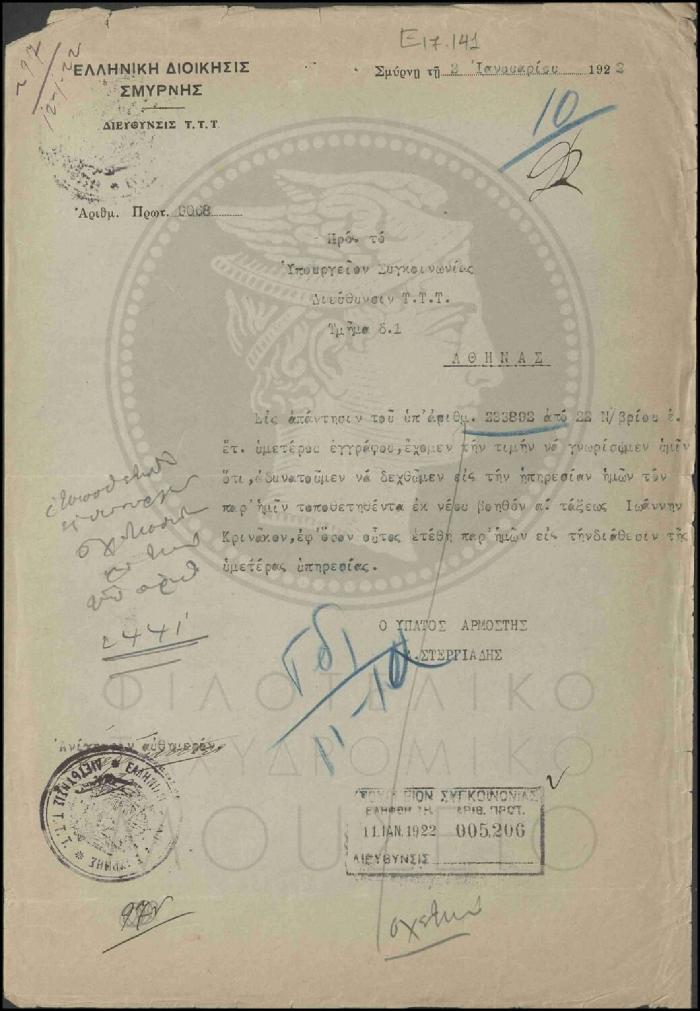 Ε17.141
297
12-1-22
ΕΛΛΗΝΙΚΗ ΔΙΟΙΚΗΣΙΣ
ΣΜΥΡΝΗΣ
ΔΙΕΥΘΥΝΣΙΣ Τ.Τ.Τ
Σμύρνῃ τῇ 3 Ἰανουαρίου 1922
10
Ἀριθμ. Πρωτ. 0068
Πρός τό
Ὑπουργεῖον Συγκοινωνίας
Διεύθυνσιν Τ.Τ.Τ.
Τμῆμα δ.1
ΑΘΗΝΑΣ
Εἰς ἀπάντησιν τοῦ ὑπ'ἀριθμ. 233892 ἀπό 22 Ν/βρίου ἐ.
ἔτ. ὑμετέρου ἐγγράφου,ἔχομεν τήν τιμήν νά γνωρίσωμεν ὑμῖν
ὅτι,ἀδυνατοῦμεν νά δεχθῶμεν εἰς τήν ὑπηρεσίαν ἡμῶν τόν
παρ'ἡμῖν τοποθετηθέντα ἐκ νέου βοηθόν αʹ τάξεως Ἰωάννην
Κρινᾶκον,ἐφ'ὅσον οὗτος ἐτέθη παρ'ἡμῶν εἰς τήνδιάθεσιν τῆς
ὑμετέρας ὑπηρεσίας.
2441
Ο ΥΠΑΤΟΣ ΑΡΜΟΣΤΗΣ
Α.ΣΤΕΡΓΙΑΔΗΣ
Τδ1
11-1
ΦΙΛΟΤΕΛΙΚΟ
ΤΑΧΥΔΡΟΜΙΚΟ
ΜΟΥΣΕΙΟ
ΕΛΛΗΝΙΚΗ ΔΙΟΙΚΗΣΙΣ ΣΜΥΡΝΗΣ ΔΙΕΥΘΥΝΣΙΣ Τ.Τ.Τ.
ΥΠΟΥΡΓΕΙΟΝ ΣΥΓΚΟΙΝΩΝΙΑΣ
ΕΛΗΦΘΗ ΤΗ ΑΡΙΘ. ΠΡΩΤ.
11.ΙΑΝ.1922 005.206
ΔΙΕΥΘΥΝΣΙΣ
σχετικό